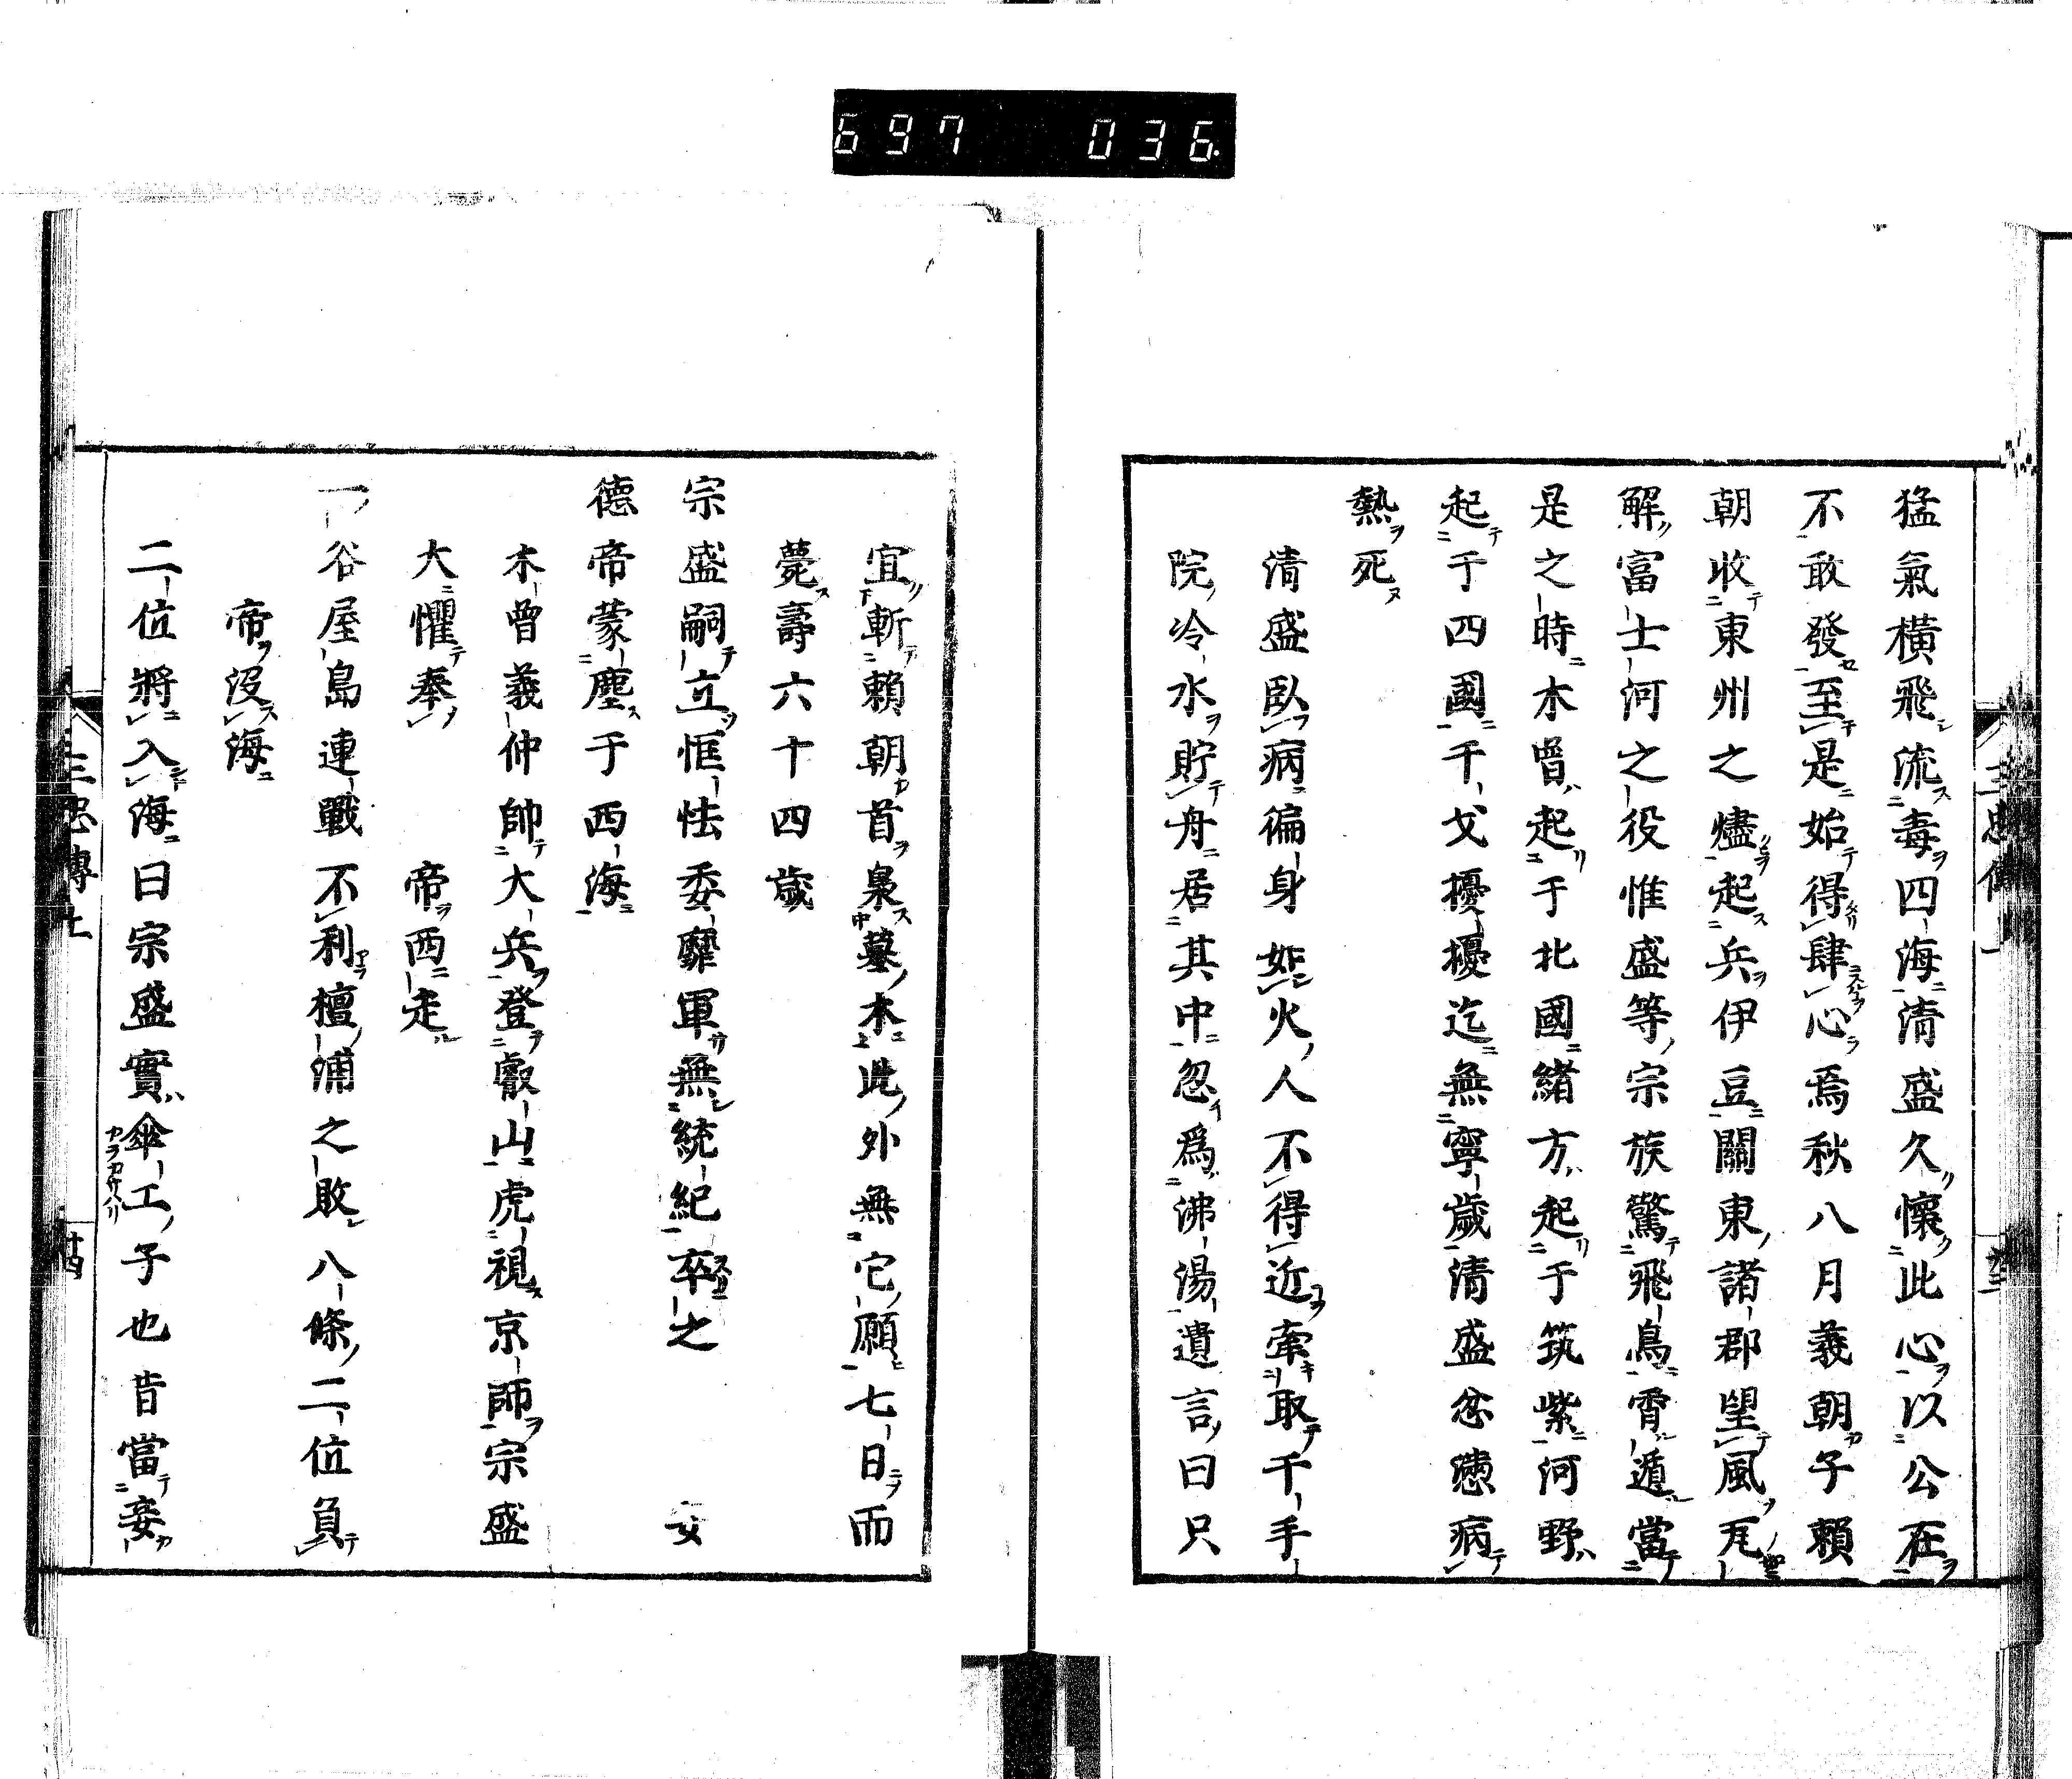 697 036
猛氣橫飛流毒四海清盛久懷此心以公在
不敢發至是始得肆心焉秋八月義朝子賴
朝收東州之燼起兵伊豆關東諸郡望風瓦
解富士河之役惟盛等宗族驚飛鳥霄遁當
是之時木曾起于北國緒方起于筑紫河野
起于四國干戈擾擾迄無寧歲清盛忿懣病
熱死
清盛臥病徧身如火人不得近牽取千手
院冷水貯舟居其中忽爲沸湯遺言曰只
宜斬賴朝首梟墓木此外無它願七日而
薨壽六十四歲
宗盛嗣立恇怯委靡軍無統紀卒之 安
德帝蒙塵于西海
木曾義仲帥大兵登叡山虎視京師宗盛
大懼奉 帝西走
一谷屋島連戰不利檀浦之敗八條二位負
帝沒海
二位將入海曰宗盛實傘工子也昔當妾
三忠傳 十四